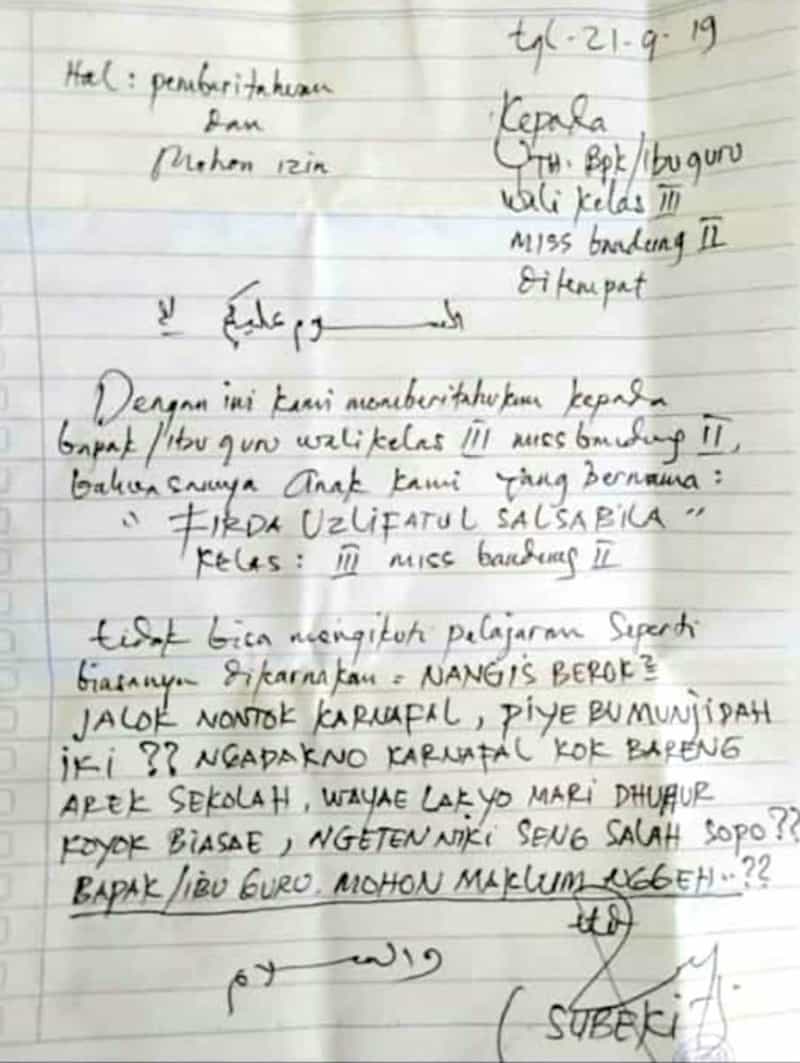 tgl. 21-9-19
Hal : pemberitahuan
dan
Mohon izin
Kepada
YTH. Bpk/ibu guru
wali kelas III
MISS bandung II
ditempat
السلام عليكم
Dengan ini kami memberitahukan kepada
bapak/ibu guru wali kelas III miss bandung II,
bahwasannya anak kami yang bernama :
" FIRDA UZLIFATUL SALSABILA "
KELAS : III MISS bandung II
tidak bisa mengikuti pelajaran seperti
biasanya dikarnakan = NANGIS BEROK²
JALOK NONTOK KARNAFAL, PIYE BU MUNJIDAH
IKI ?? NGADAKNO KARNAFAL KOK BARENG
AREK SEKOLAH, WAYAE LAK YO MARI DHUHUR
KOYOK BIASAE, NGETEN NIKI SENG SALAH SOPO ??
BAPAK/IBU GURU. MOHON MAKLUM NGGEH..??
ttd
والسلام
( SUBEKI